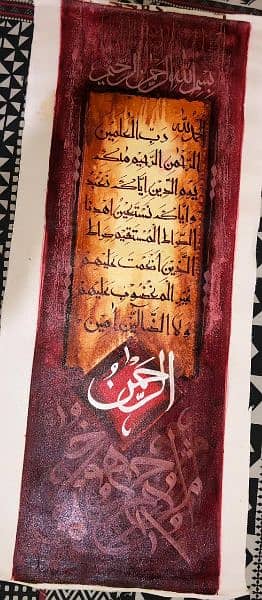 بسم الله الرحمن الرحيم
الحمد لله رب العلمين
الرحمن الرحيم ملك
يوم الدين اياك نعبد
و اياك نستعين اهدنا
الصراط المستقيم صراط
الذين انعمت عليهم
غير المغضوب عليهم
ولا الضالين امين
الرحمن